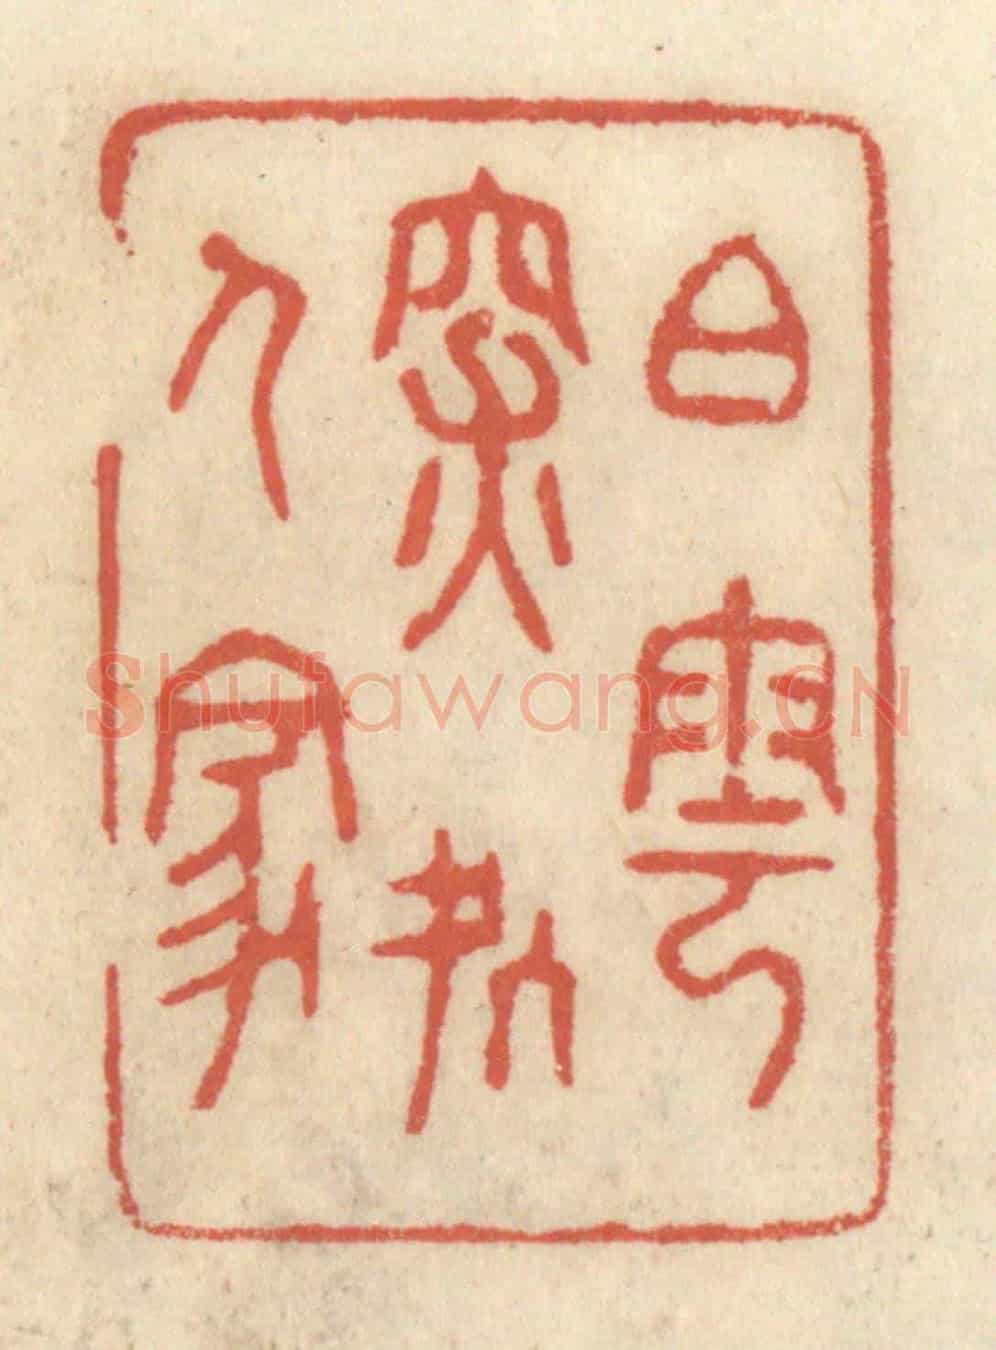 白雲
深處
人家
Shufawang.CN